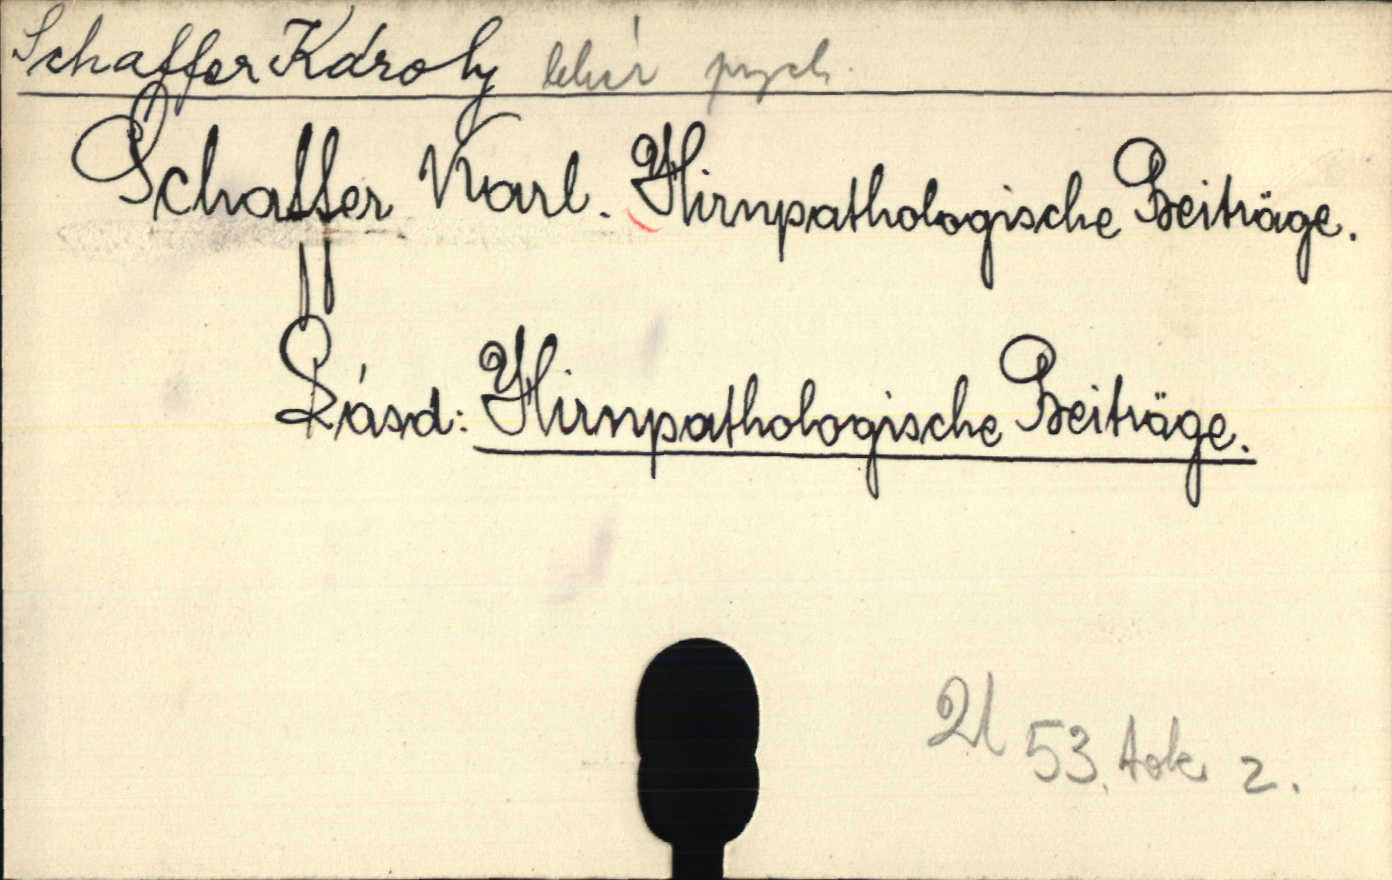 Schaffer Károly
Schaffer Karl. Hirnpathologische Beiträge.
Lásd: Hirnpathologische Beiträge.
53. 2.